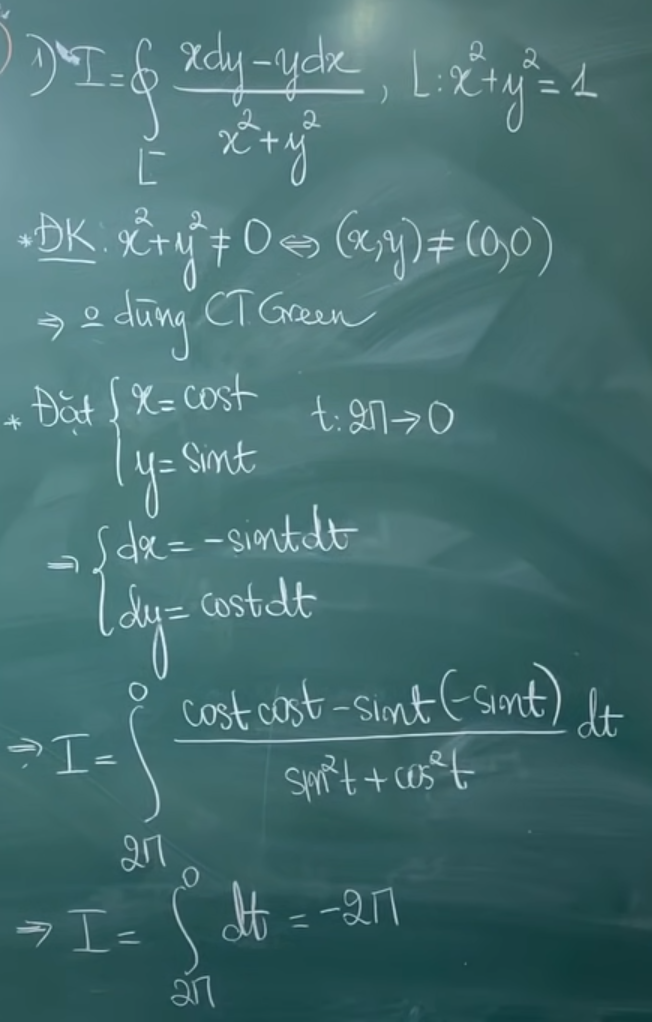 1) I = ∮_{L⁻} (xdy - ydx)/(x² + y²), L: x² + y² = 1
* ĐK: x² + y² ≠ 0 ⇔ (x,y) ≠ (0,0)
⇒ o dùng CT Green
* Đặt { x = cost t: 2π → 0
y = sint
⇒ { dx = -sintdt
dy = costdt
⇒ I = ∫_{2π}^{0} (cost cost - sint(-sint))/(sin²t + cos²t) dt
⇒ I = ∫_{2π}^{0} dt = -2π